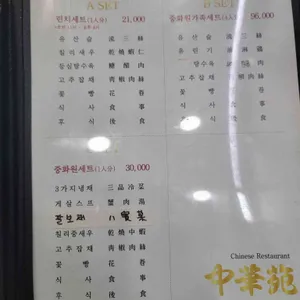 A SET
런치세트(1人分) 21,000
유산슬 溜三絲
칠리새우 乾燒蝦仁
등심탕수육 糖醋肉
고추잡채 靑椒肉絲
꽃빵 花卷
식사 食事
후식 後食
B SET
중화원가족세트 96,000
유산슬 溜三絲
탕수육
꽃빵 花卷
식사 食事
후식 後食
중화원세트(1人分) 30,000
3가지냉채 三品冷菜
게살스프 蟹肉湯
팔보채 八寶菜
칠리중새우 乾燒中蝦
고추잡채 靑椒肉絲
꽃빵 花卷
식사 食事
후식 後食
Chinese Restaurant
中華苑